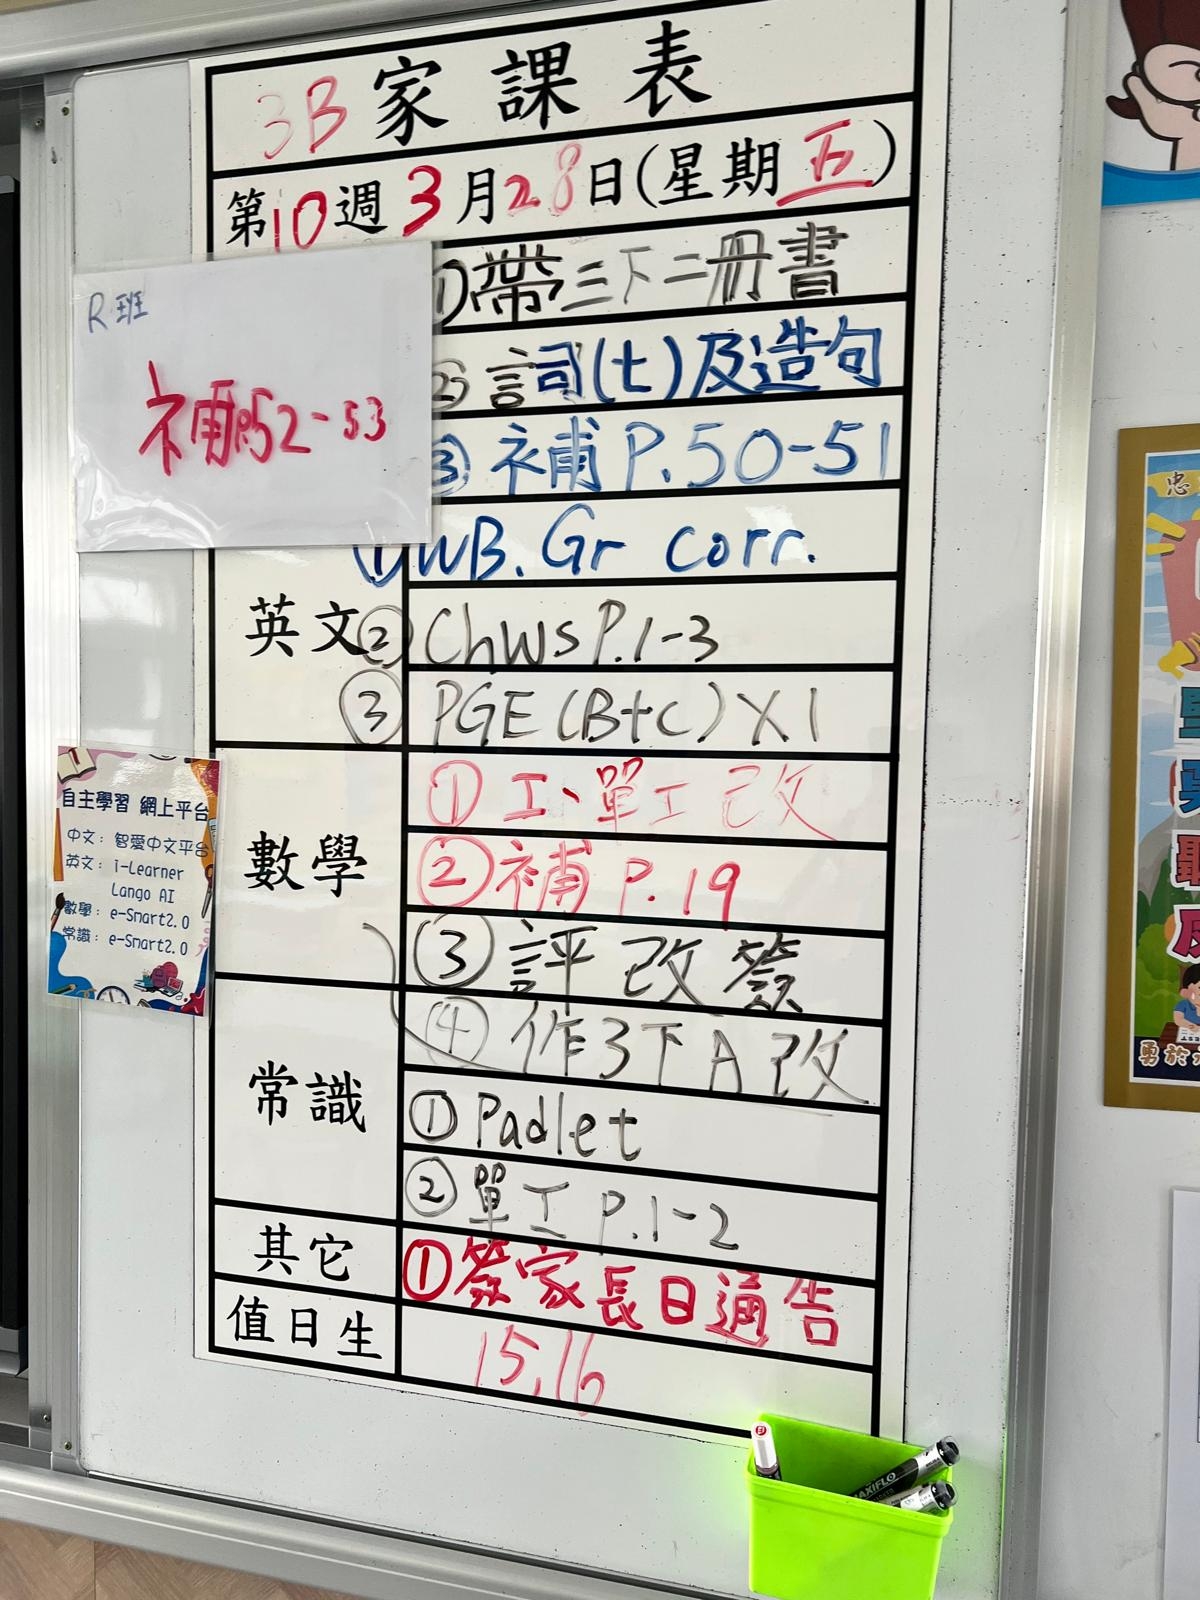 3B 家課表
第10週3月28日(星期五)
①帶三下二冊書
② 詞(七)及造句
③ 補 P.50-51
R班
補P.52-53
英文
① WB. Gr corr.
② ChWs P.1-3
③ PGE (B+C) X 1
數學
① 工、單工改
② 補 P.19
③ 評改簽
④ 作3下A改
常識
① Padlet
② 單工 P.1-2
其它
① 簽家長日通告
值日生
15,16
自主學習 網上平台
中文：智愛中文平台
英文：i-Learner
Lango AI
數學：e-Smart2.0
常識：e-Smart2.0
忠
勇於